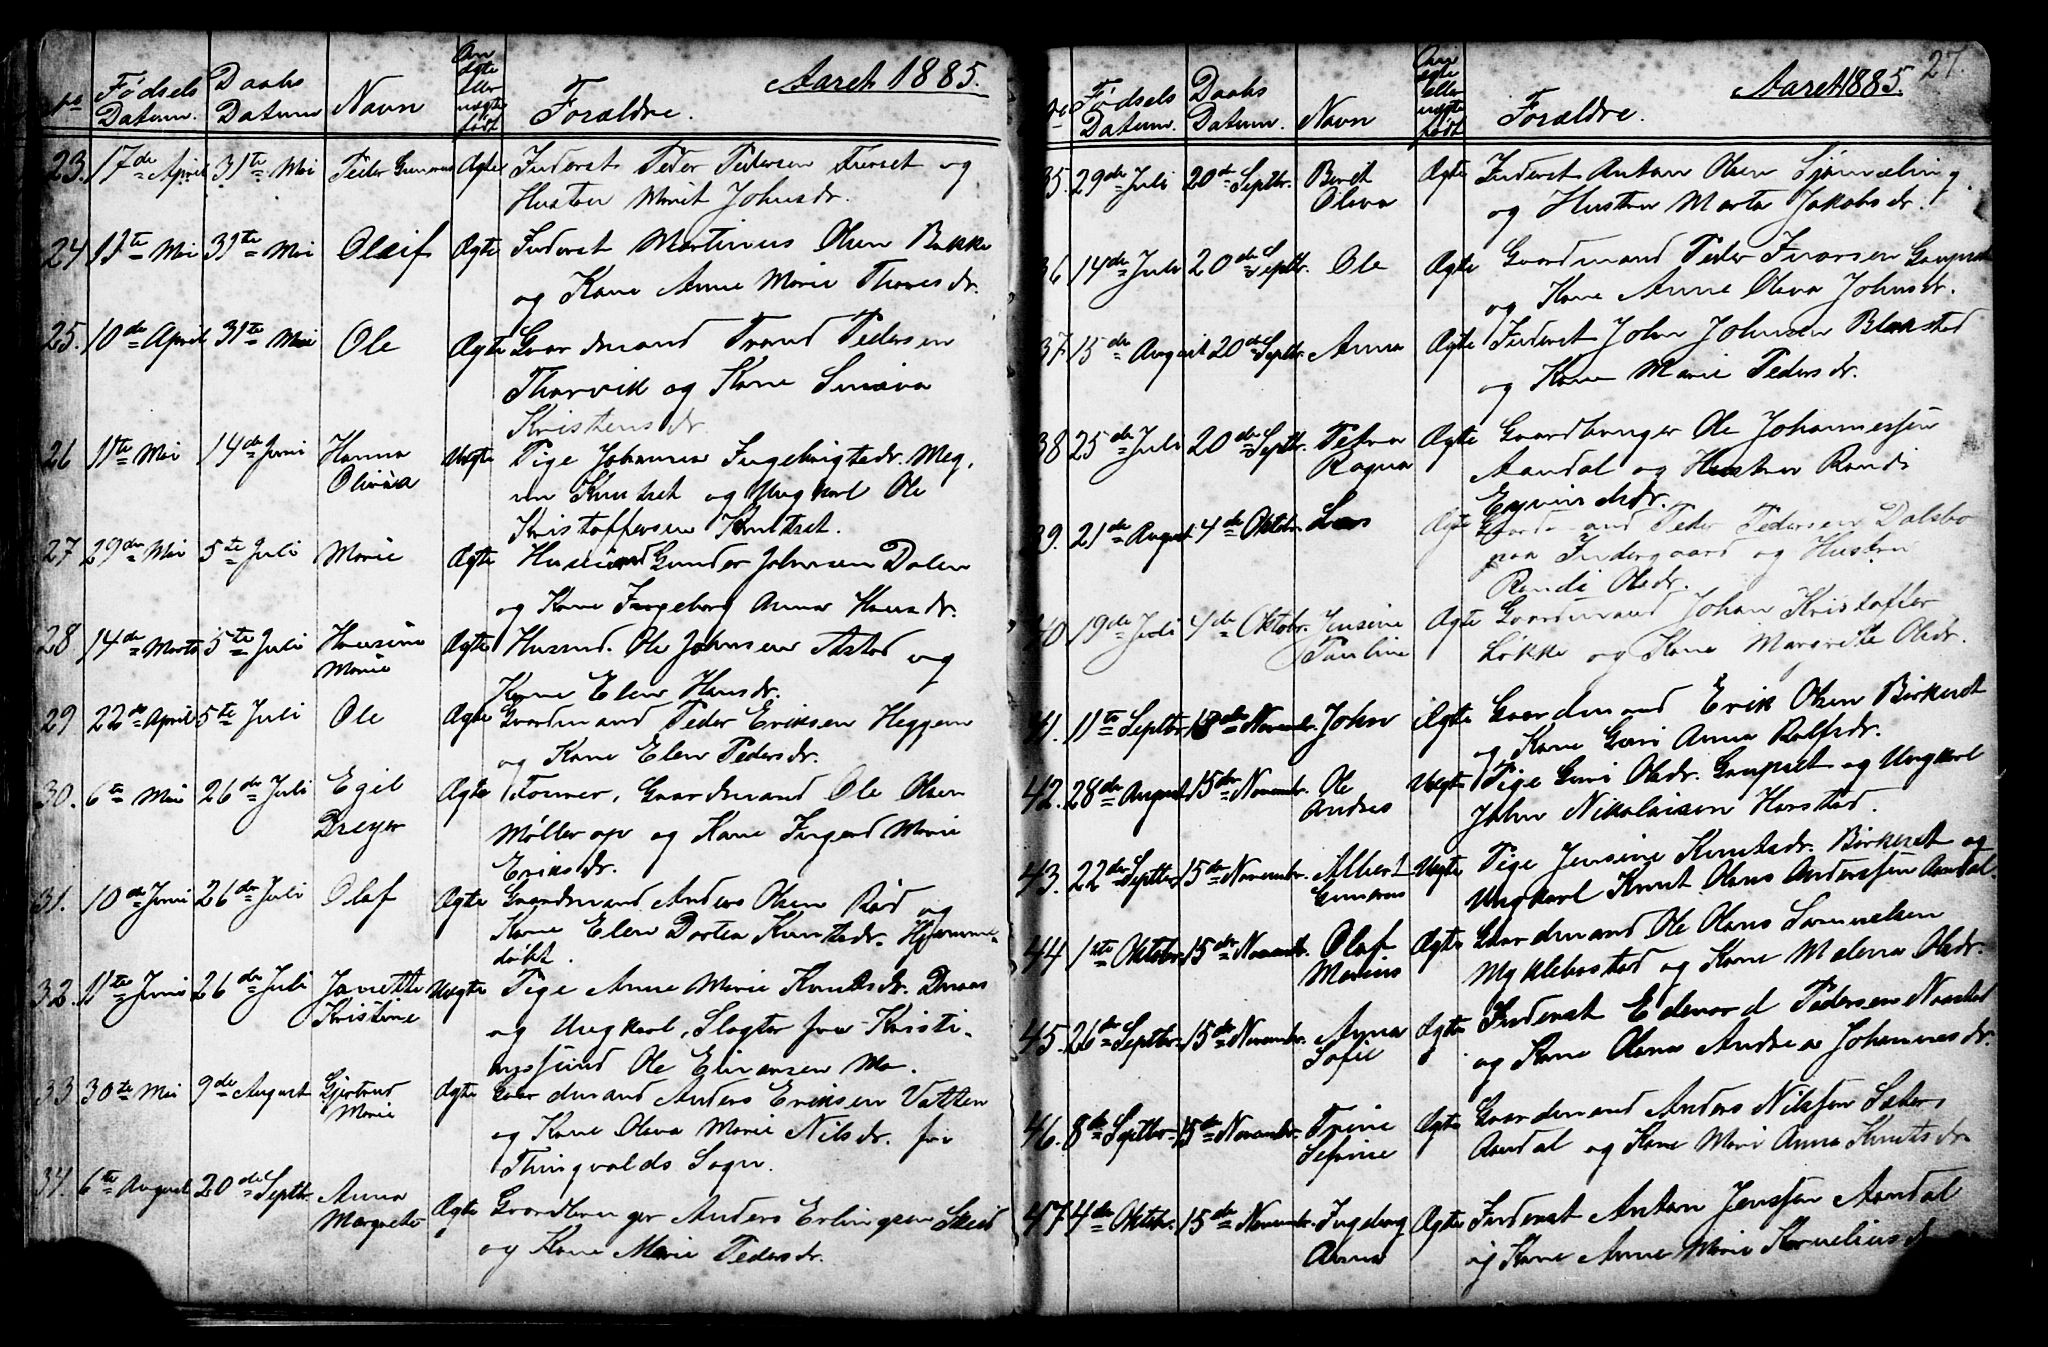 Aaret 1885.
No Fødsels Datum. Daabs Datum Navn Om ægte eller uægte født Forældre.
23. 17de April 31te Mai Peder Gunerius Ægte Inderst Peder Pedersen Furset og
Hustru Marit Johnsdr.
24 11te Mai 31te Mai Oluif Ægte Inderst Martinus Olsen Bakke
og Kone Anne Marie Thoresdr.
25. 10de April 31te Mai Ole Ægte Gaardmand Trond Pedersen
Thorvik og Kone
Kristensdr
26 11te Mai 14de Juni Hanna Uægte Pige Johanna Ingebrigtsdr. Meg,
Oliva Knutset og Ungkarl Ole
Kristoffersen Knutset.
27 29de Mai 5te Juli Marie Ægte Husmand Gunder Johnsen Dalen
og Kone Ingeborg Anna Hansdr.
28 14de Marts 5te Juli Hansine Ægte Husmd. Ole Johnsen Astad og
Marie Kone Elen Hansdr.
29 22de April 5te Juli Ole Ægte Gaardmand Peder Eriksen Heggem
og Kone Elen Pedersdr.
30. 6te Mai 26de Juli Egil Ægte Gaardmand Ole Olsen
Dreyer Møllerop og Kone Ingerd Marie
Eriksdr.
31. 10de Juni 26de Juli Olaf Ægte Gaardmand Anders Olsen Rød og
Kone Elen Dortea Knutsdr. Hjemme-
døbt.
32. 11te Juni 26de Juli Janette Uægte Pige Anne Marie Knutsdr.
Kristine og Ungkarl, Slagter fra Kristi-
ansund Ole Einarsen Mo.
33. 30te Mai 9de August Gjertrud Ægte Gaardmand Anders Eriksen Vatten
Marie og Kone Oliva Marie Nilsdr. fra
Thingvolds Sogn.
34. 6te August 20de Septbr. Anna Ægte Gaardbruger Anders Erlingsen Skeid
Margrete og Kone Marie Pedersdr.
27.
Aaret 1885.
No Fødsels Datum. Daabs Datum. Navn Om ægte eller uægte født Forældre.
35. 29de Juli 20de Septbr. Berit Ægte Inderst Anton Olsen Sjømæling
Oliva og Hustru Marta Jakobsdr.
36 14de Juli 20de Septbr. Ole Ægte Gaardmand Peder Ivarsen Gaupset
og Kone Anne Oliva Johnsdr.
37. 15de August 20de Septbr. Anna Ægte Inderst John Johnsen Blakstad
og Kone Marie Pedersdr.
38 25de Juli 20de Septbr. Petra Ægte Gaardbruger Ole Johannessen
Ragna Aandal og Hustru Randi
39. 21de August 4de Oktobr. Lars Ægte Gaardmand Peder Pedersen Dalsbø
paa Indergaard og Hustru
Randi Olsdr.
40 19de Juli 4de Oktobr. Jensine Ægte Gaardmand Johan Kristoffer
Pauline Løkke og Kone Margrete Olsdr.
41. 11te Septbr. Novembr. John Ægte Gaardmand Erik Olsen Birkeset
og Kone Guri Anna Rolfsdr.
42. 28de August 15de Novembr. Ole Uægte Pige Guri Olsdr. Gaupset og Ungkarl
Andreas John Nikolaisen Harstad.
43. 22de Septbr. 15de Novembr. Albert Uægte Pige Jensine Knutsdr. Birkeset og
Gunerius Ungkarl Knut Olaus Anderssen Aandal.
44 1ste Oktobr. 15de Novembr. Olaf Ægte Gaardmand Ole Olaus Samuelsen
Marius Myklebostad og Kone Malena Olsdr.
45. 26de Septbr. 15de Novembr. Anna Ægte Inderst Edevard Pedersen Naastad
Sofie og Kone Olina Andrea Johannesdr.
46. 8de Septbr. 15de Novembr. Trine Ægte Gaardmand Anders Nilssen Sæter
Serine Aandal og Kone Mari Anna Knutsdr.
47 4de Oktobr. 15de Novembr. Ingeborg Ægte Inderst Anton Jenssen Aandal
Anna og Kone Anne Marie Korneliusdr